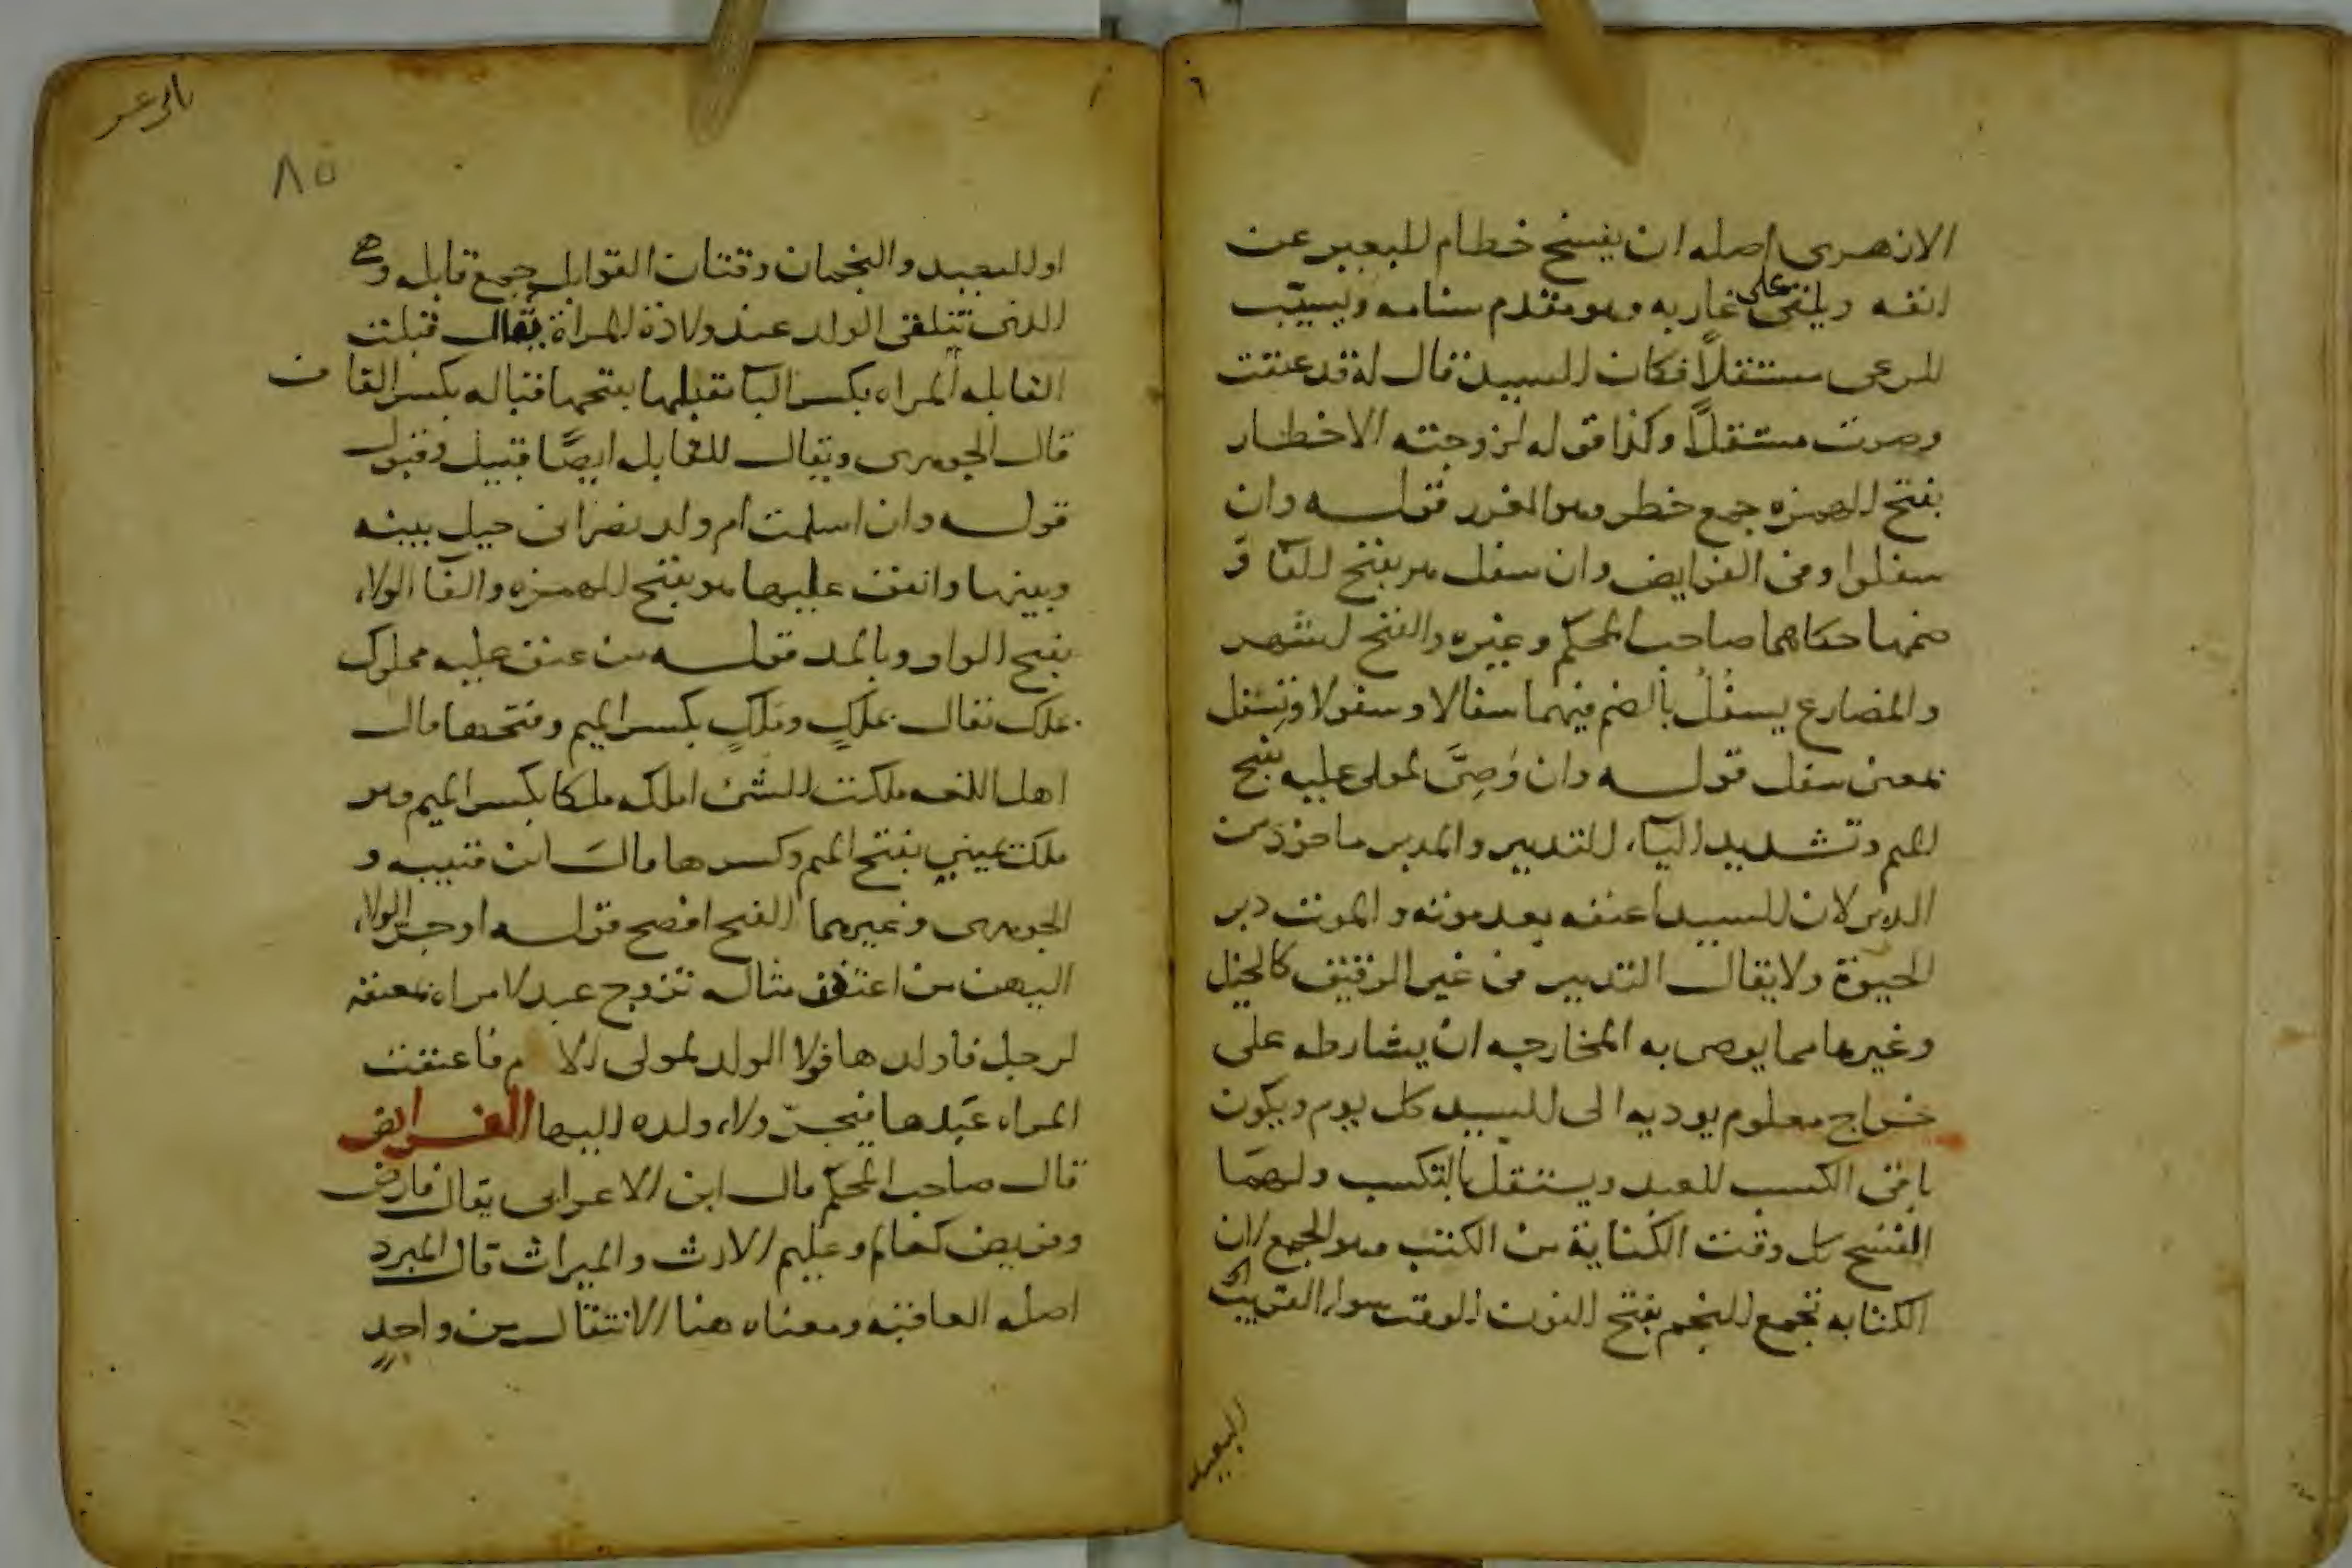 الازهرى اصله ان يفسخ خطام البعير عن
انفه ويلقى على غاربه وهو مقدم سنامه ويسيّب
للمرعى مستقلاً فكان السيد قال له قد عتقت
وصرت مستقلاً وكذا قوله لزوجته الاخطار
بفتح الهمزه جمع خطر وهو الغرر قوله وان
سفلوا وفى الفرايض وان سفل هو بفتح الفا و
ضمها حكاهما صاحب المحكم وغيره والفتح اشهر
والمضارع يسفُلُ بالضم فيهما سفالا وسفولا وتسفل
بمعنى سفل قوله وان وُصِىَّ لمولى عليه بفتح
الميم وتشديد الياء التدبير والمدبر ماخوذ من
الدبر لان السيد اعتقه بعد موته والموت دبر
الحيوة ولا يقال التدبير فى غير الرقيق كالخيل
وغيرها مما يوصى به المخارجه ان يشارطه على
خراج معلوم يوديه الى السيد كل يوم ويكون
باقى الكسب للعبد ويستقل بالتكسب ولهما
الفسخ كل وقت الكتابة من الكتب وهو الجمع لان
الكتابه تجمع النجم بفتح النون الوقت سوا القريب
البعيد
٨٥
او البعيد والنجمان وقتان القوابل جمع قابله وهى
التى تتلقى الولد عند ولادة المراة يقال قبلت
القابله المراه بكسر البا تقبلها بفتحها قباله بكسر القاف
قال الجوهرى ويقال للقابل ايضًا قبيل وقبول
قوله وان اسلمت ام ولد نصرانى حيل بينه
وبينها وانفق عليها هو بفتح الهمزه والفا الولاء
بفتح الواو وبالمد قوله من عتق عليه مملوك
بملك يقال بملك وملك بكسر الميم وفتحها قال
اهل اللغه ملكت الشئ املكه ملكا بكسر الميم وهو
ملك يمينى بفتح الميم وكسرها قال ابن قتيبه و
الجوهرى وغيرهما الفتح افصح قوله او جر الولاء
اليهن من اعتقن مثاله تزوج عبد لامراه بمعتقه
لرجل فاولدها فولا الولد لمولى الام فاعتقت
المراه عبدها فيجرّ ولاء ولده اليها الفرايض
قال صاحب المحكم قال ابن الاعرابى يقال فارض
وفريض كعالم وعليم الارث والميراث قال المبرد
اصله العاقبه ومعناه هنا الانتقال من واحدٍ